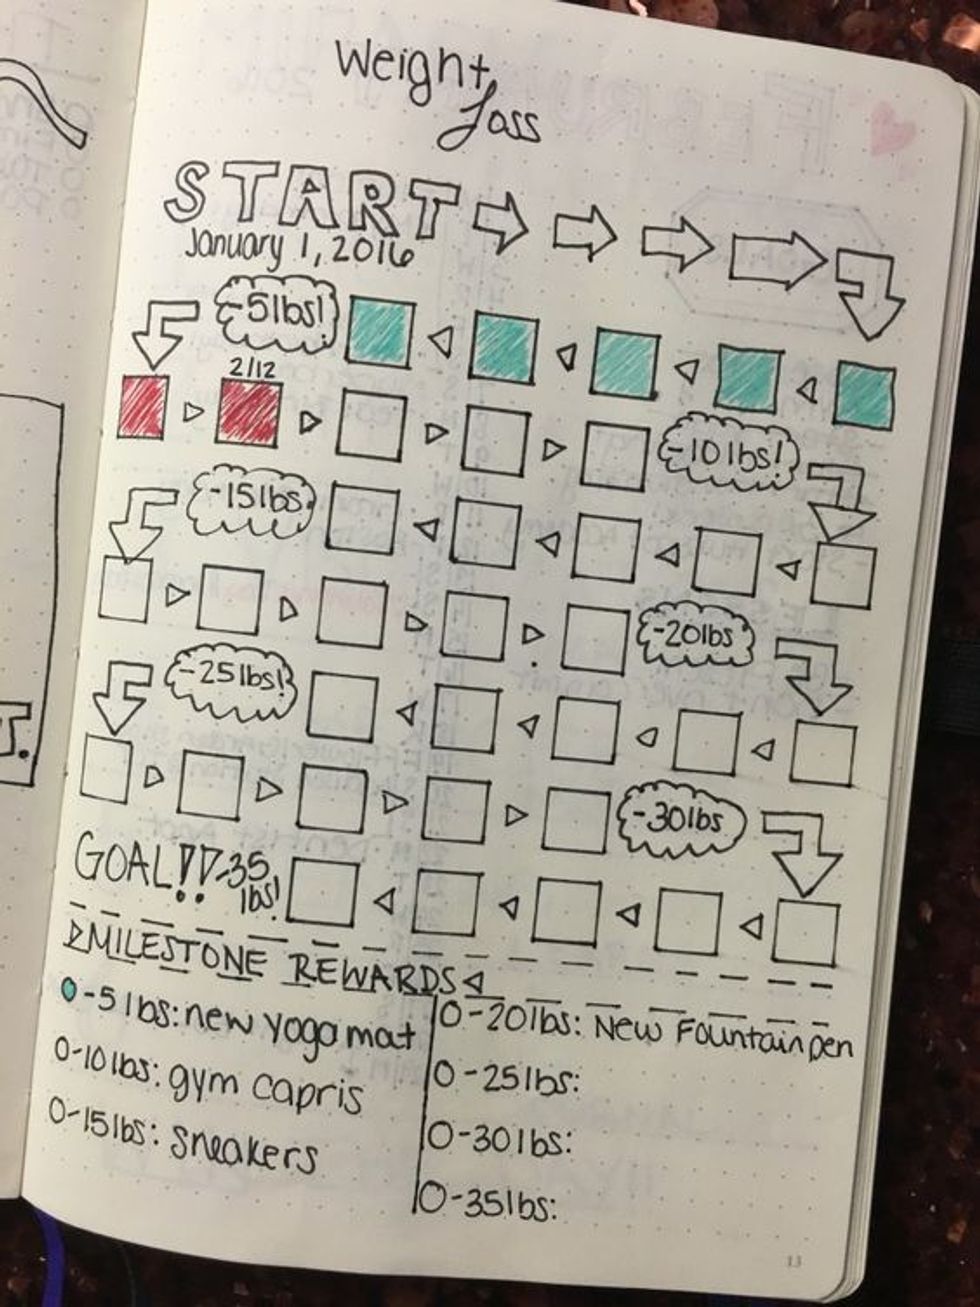 Weight
Loss
START
January 1, 2016
-5lbs!
2/12
-10lbs!
-15lbs!
-20lbs
-25lbs!
-30lbs
GOAL!! -35
lbs!
MILESTONE REWARDS
-5lbs: new yoga mat
-10lbs: gym capris
-15lbs: sneakers
-20lbs: New Fountain pen
-25lbs:
-30lbs:
-35lbs:
13